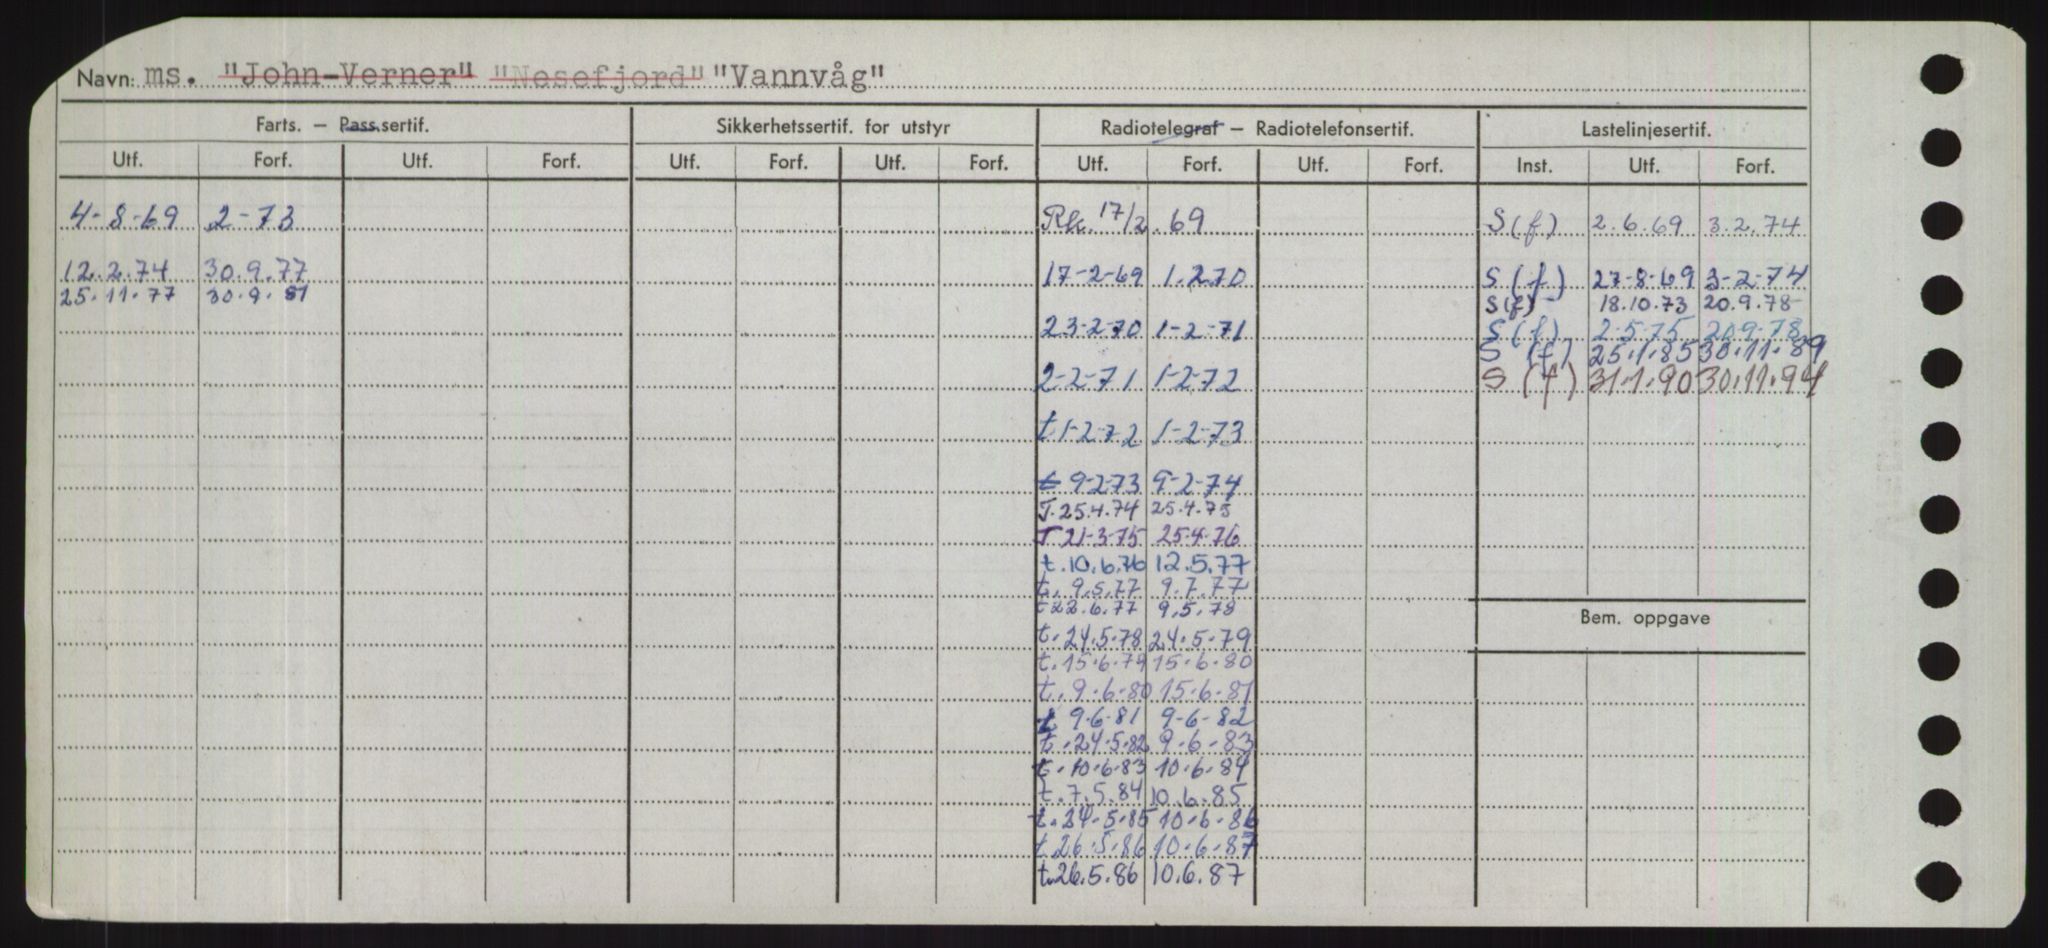 Navn: ms. "John-Verner" "Nesefjord" "Vannvåg"
Farts. – Pass.sertif. Sikkerhetssertif. for utstyr Radiotelegraf – Radiotelefonsertif. Lastelinjesertif.
Utf. Forf. Utf. Forf. Utf. Forf. Utf. Forf. Utf. Forf. Utf. Forf. Inst. Utf. Forf.
4-8-69 2-73 Rk. 17/2.69 S(f) 2.6.69 3.2.74
12.2.74 30.9.77 17-2-69 1.2.70 S(f) 27-8-69 3-2-74
25.11.77 30.9.81 S(f) 18.10.73 20.9.78
23-2-70 1-2-71 S(f) 2-5-75 20-9-78
S (f) 25.1.85 30.11.89
2-2-71 1-2-72 S (f) 31.1.90 30.11.94
t 1-2-72 1-2-73
t 9-2-73 9-2-74
T. 25.4.74 25.4.75
T 21-3-75 25-4-76
t. 10.6.76 12.5.77
t. 9.5.77 9.7.77
t 22.6.77 9.5.78
Bem. oppgave
t. 24.5.78 24.5.79
t. 15.6.79 15.6.80
t. 9.6.80 15.6.81
t 9-6-81 9-6-82
t. 24.5.82 9.6.83
t. 10.6.83 10.6.84
t. 7.5.84 10.6.85
t. 24.5.85 10.6.86
t. 26.5.86 10.6.87
t. 26.5.86 10.6.87